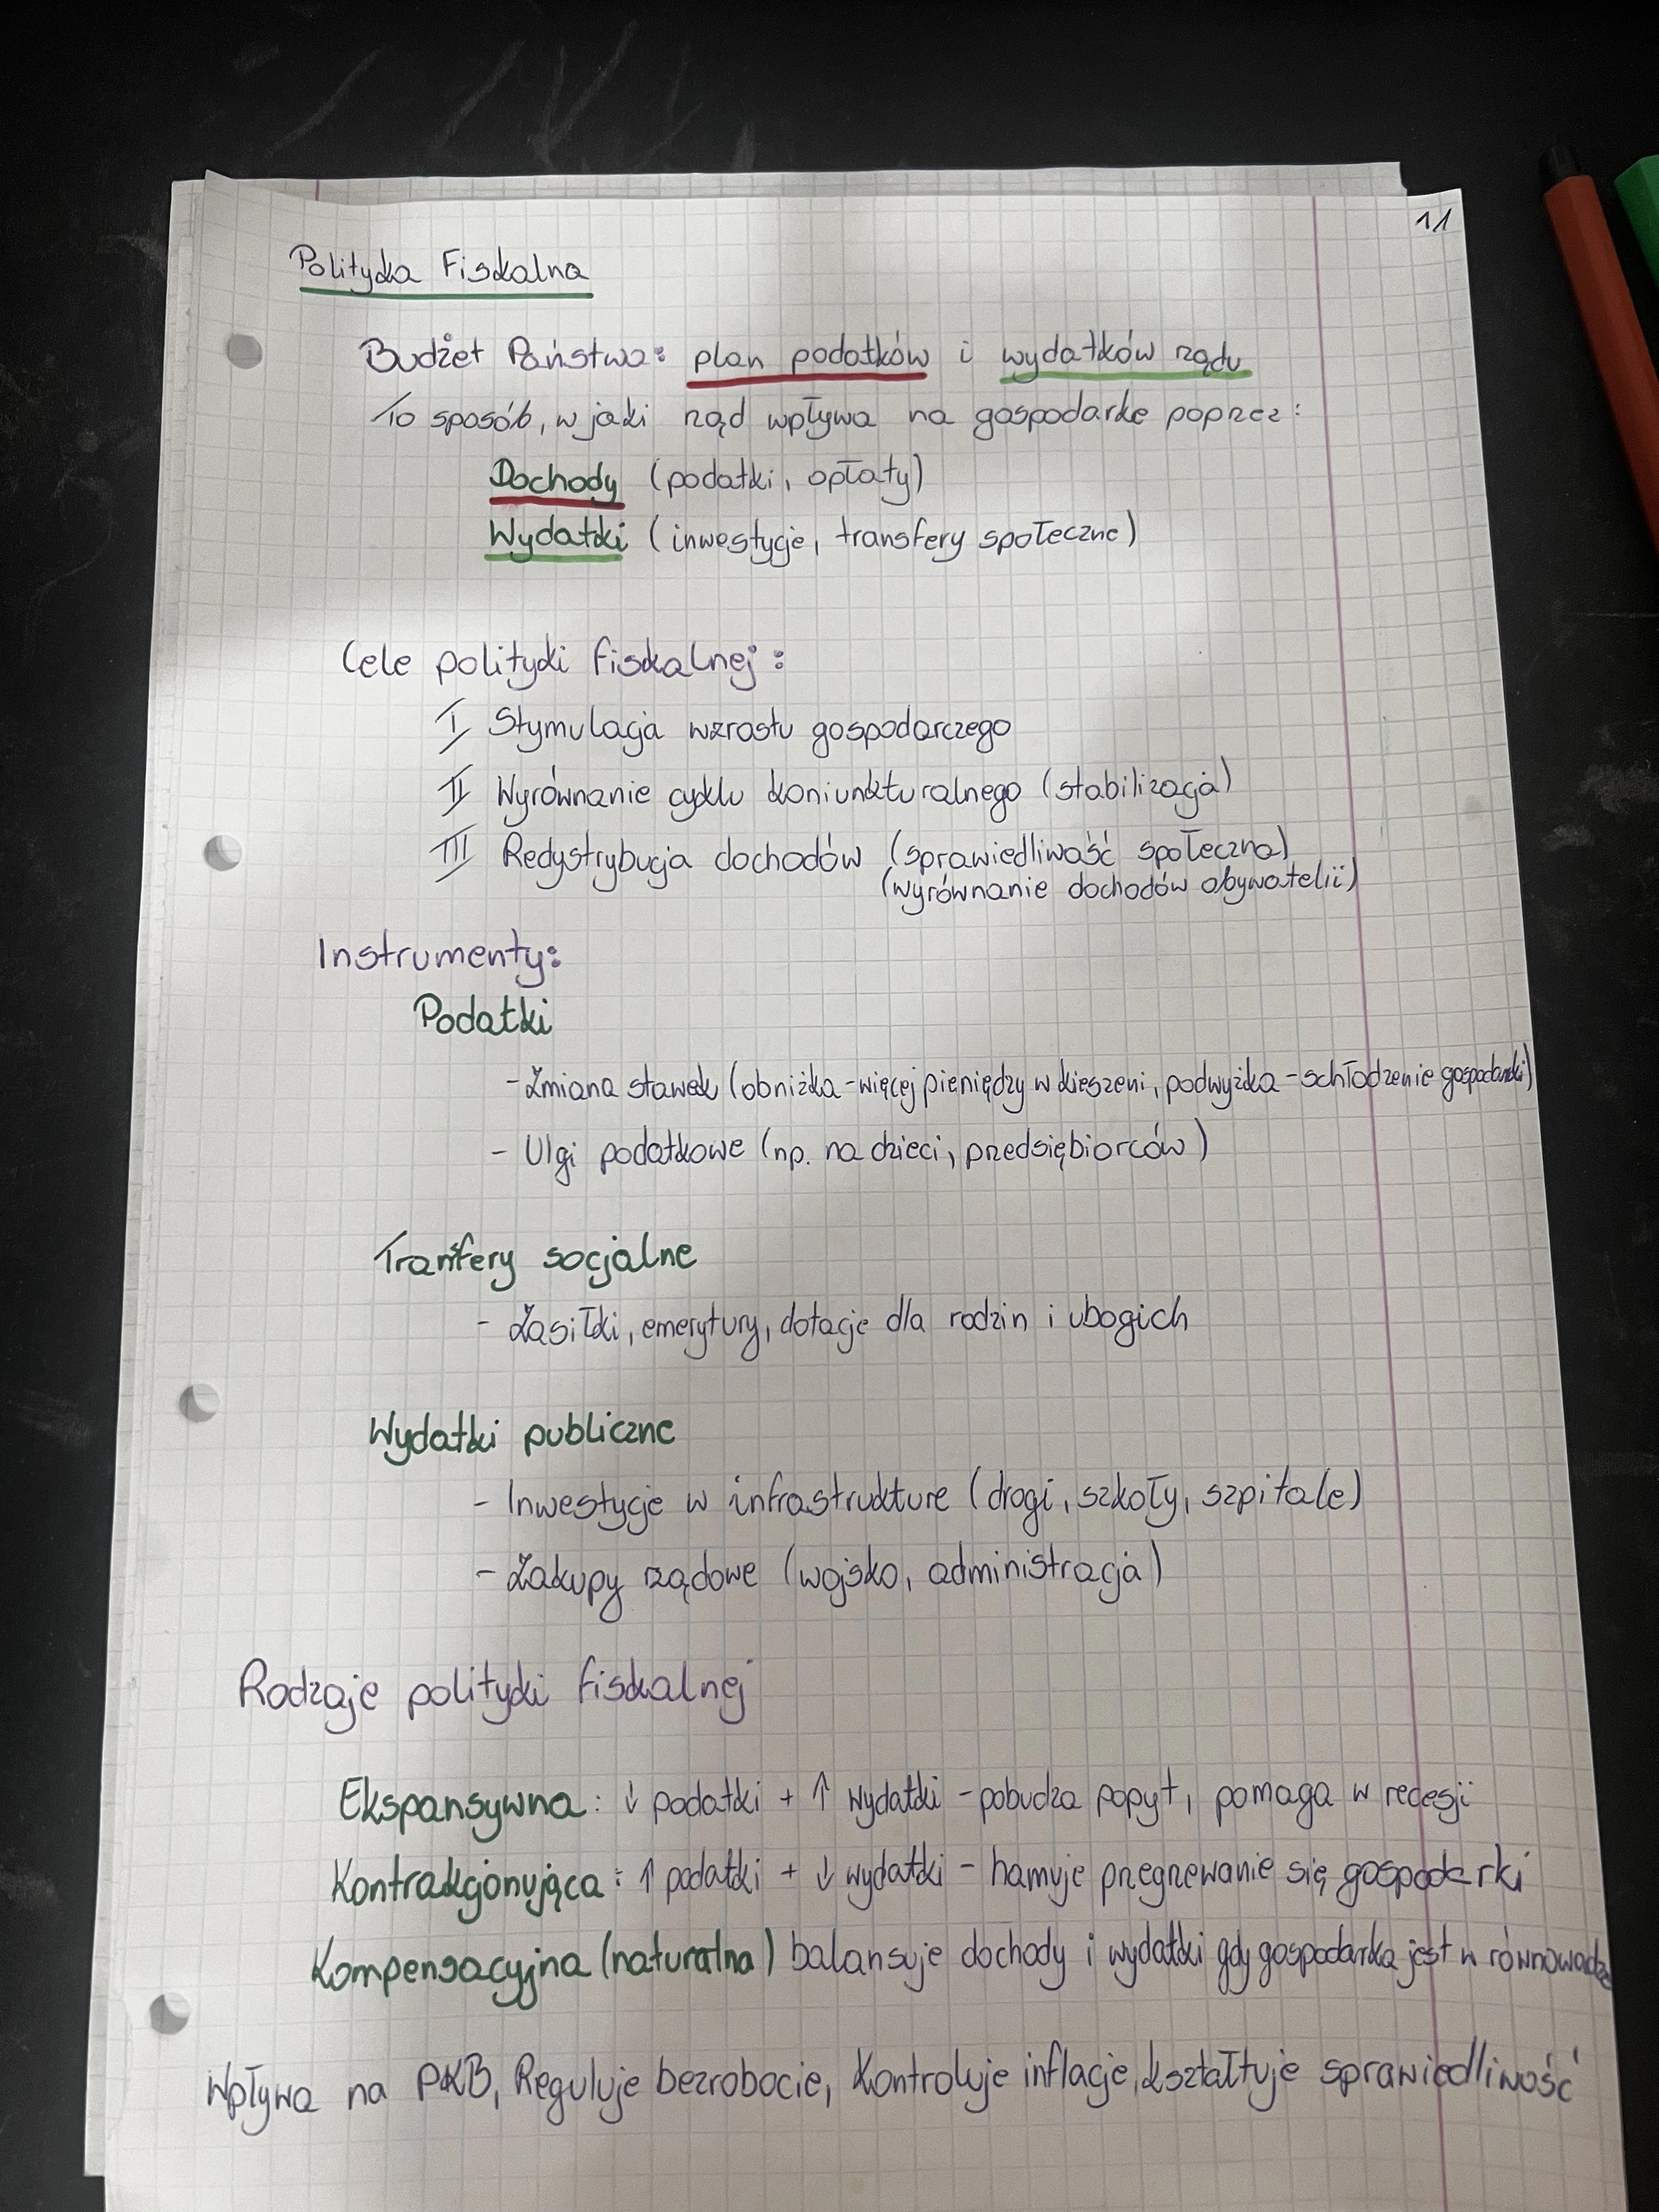 11
Polityka Fiskalna
Budżet Państwa: plan podatków i wydatków rządu
To sposób, w jaki rząd wpływa na gospodarke poprzez:
Dochody (podatki, opłaty)
Wydatki (inwestycje, transfery społeczne)
Cele polityki fiskalnej:
I Stymulacja wzrostu gospodarczego
II Wyrównanie cyklu koniunkturalnego (stabilizacja)
III Redystrybucja dochodów (sprawiedliwość społeczna)
(wyrównanie dochodów obywatelii)
Instrumenty:
Podatki
- Zmiana stawek (obniżka - więcej pieniędzy w kieszeni, podwyżka - schłodzenie gospodarki)
- Ulgi podatkowe (np. na dzieci, przedsiębiorców)
Tranfery socjalne
- Zasiłki, emerytury, dotacje dla rodzin i ubogich
Wydatki publiczne
- Inwestycje w infrastrukture (drogi, szkoły, szpitale)
- Zakupy rządowe (wojsko, administracja)
Rodzaje polityki fiskalnej
Ekspansywna: ↓ podatki + ↑ wydatki - pobudza popyt, pomaga w recesji
Kontrakcjonująca: ↑ podatki + ↓ wydatki - hamuje przegrzewanie się gospodarki
Kompensacyjna (naturalna) balansuje dochody i wydatki gdy gospodarka jest w równowadze
Wpływa na PKB, Reguluje bezrobocie, Kontroluje inflacje, kształtuje sprawiedliwość